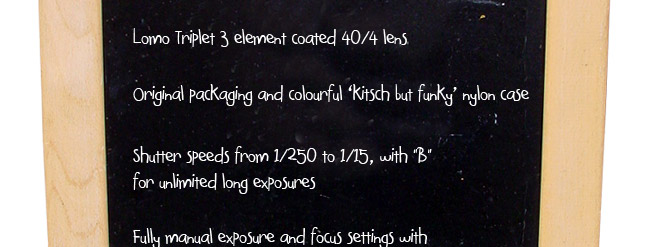 Lomo Triplet 3 element coated 40/4 lens
Original packaging and colourful 'Kitsch but funky' nylon case
Shutter speeds from 1/250 to 1/15, with "B"
for unlimited long exposures
Fully manual exposure and focus settings with